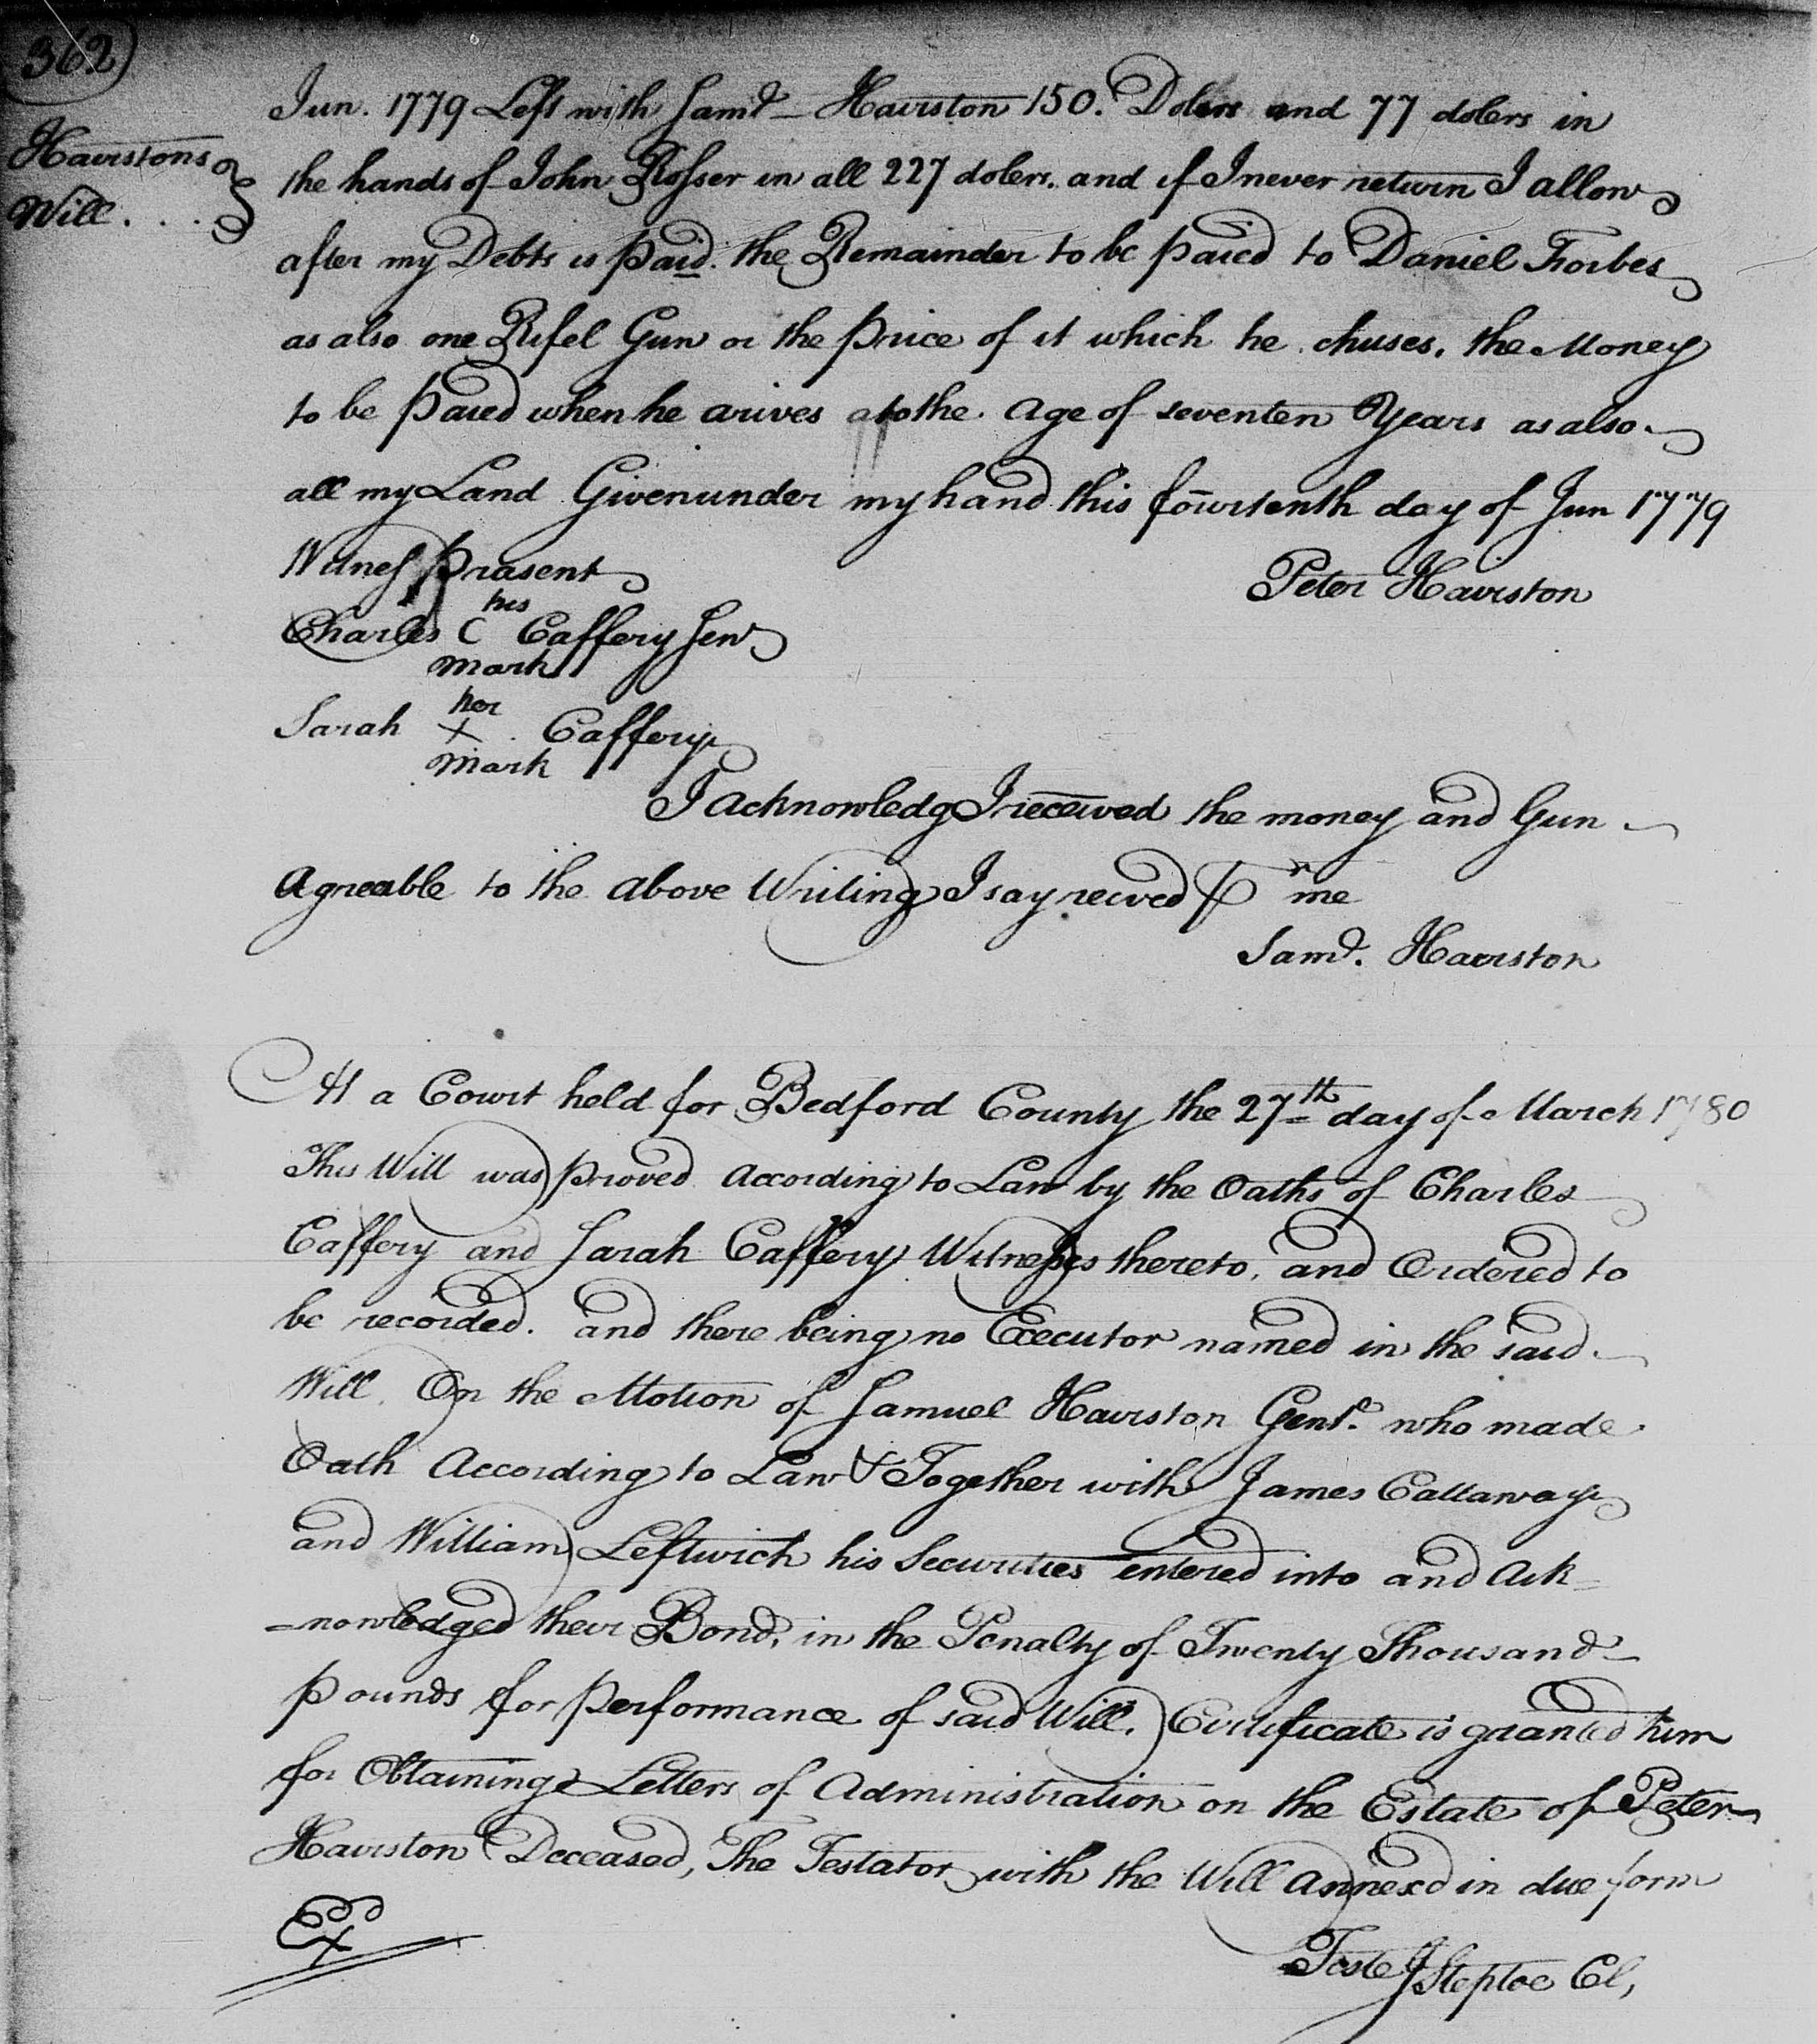 362)
Hairstons
Will . . .
Jun. 1779 Left with Saml Hairston 150. Dolers and 77 dolers in
the hands of John Rosser in all 227 dolers. and if I never return I allow
after my Debts is paid. the Remainder to be paied to Daniel Forbes
as also one Rifel Gun or the price of it which he chuses. the Money
to be paied when he arives at to the age of seventen Years as also
all my Land Given under my hand this fourtenth day of Jun 1779
Witness prasent
Peter Hairston
his
Charles C Caffery Senr
mark
her
Sarah X Caffery
mark
I acknowledg I received the money and Gun
Agreable to the above Writing I say receved pr me
Saml. Hairston
At a Court held for Bedford County the 27th day of March 1780
This Will was proved According to Law by the Oaths of Charles
Caffery and Sarah Caffery Witnesses thereto, and Ordered to
be recorded. and there being no Executor named in the said
Will. On the Motion of Samuel Hairston Gent. who made
Oath According to Law & Together with James Callaway
and William Leftwich his Securities entered into and Ack=
=nowledged their Bond, in the Penalty of Twenty Thousand
pounds for performance of said Will. Certificate is granted him
for Obtaining Letters of Administration on the Estate of Peter
Hairston Deceased, The Testator with the Will Annexd in due form
Ex
Teste J Steptoe Cl,